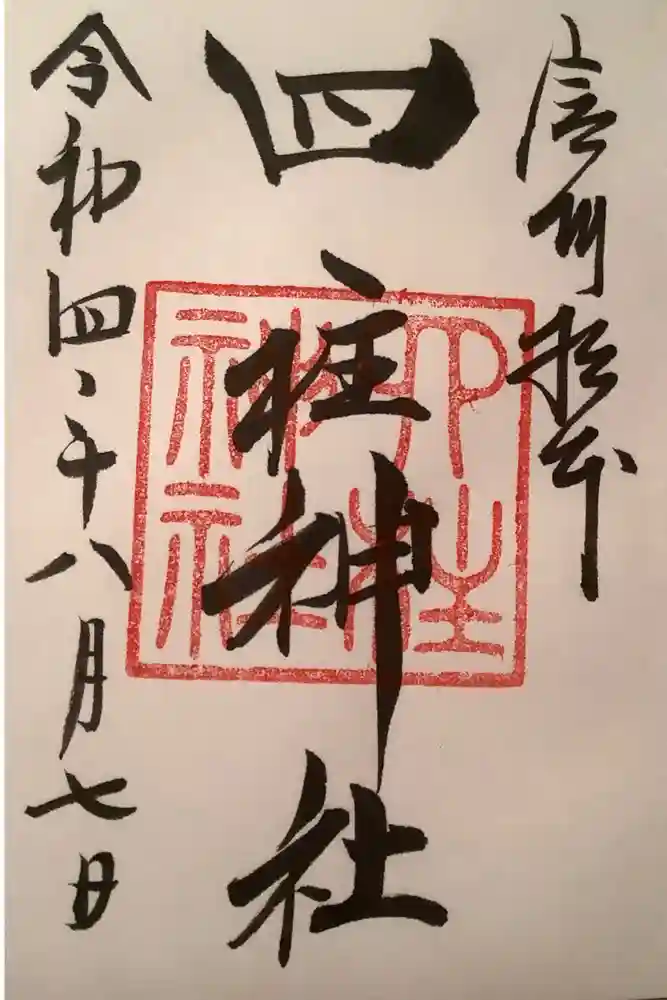 信州松本
四柱神社
四柱神社
令和四年八月七日